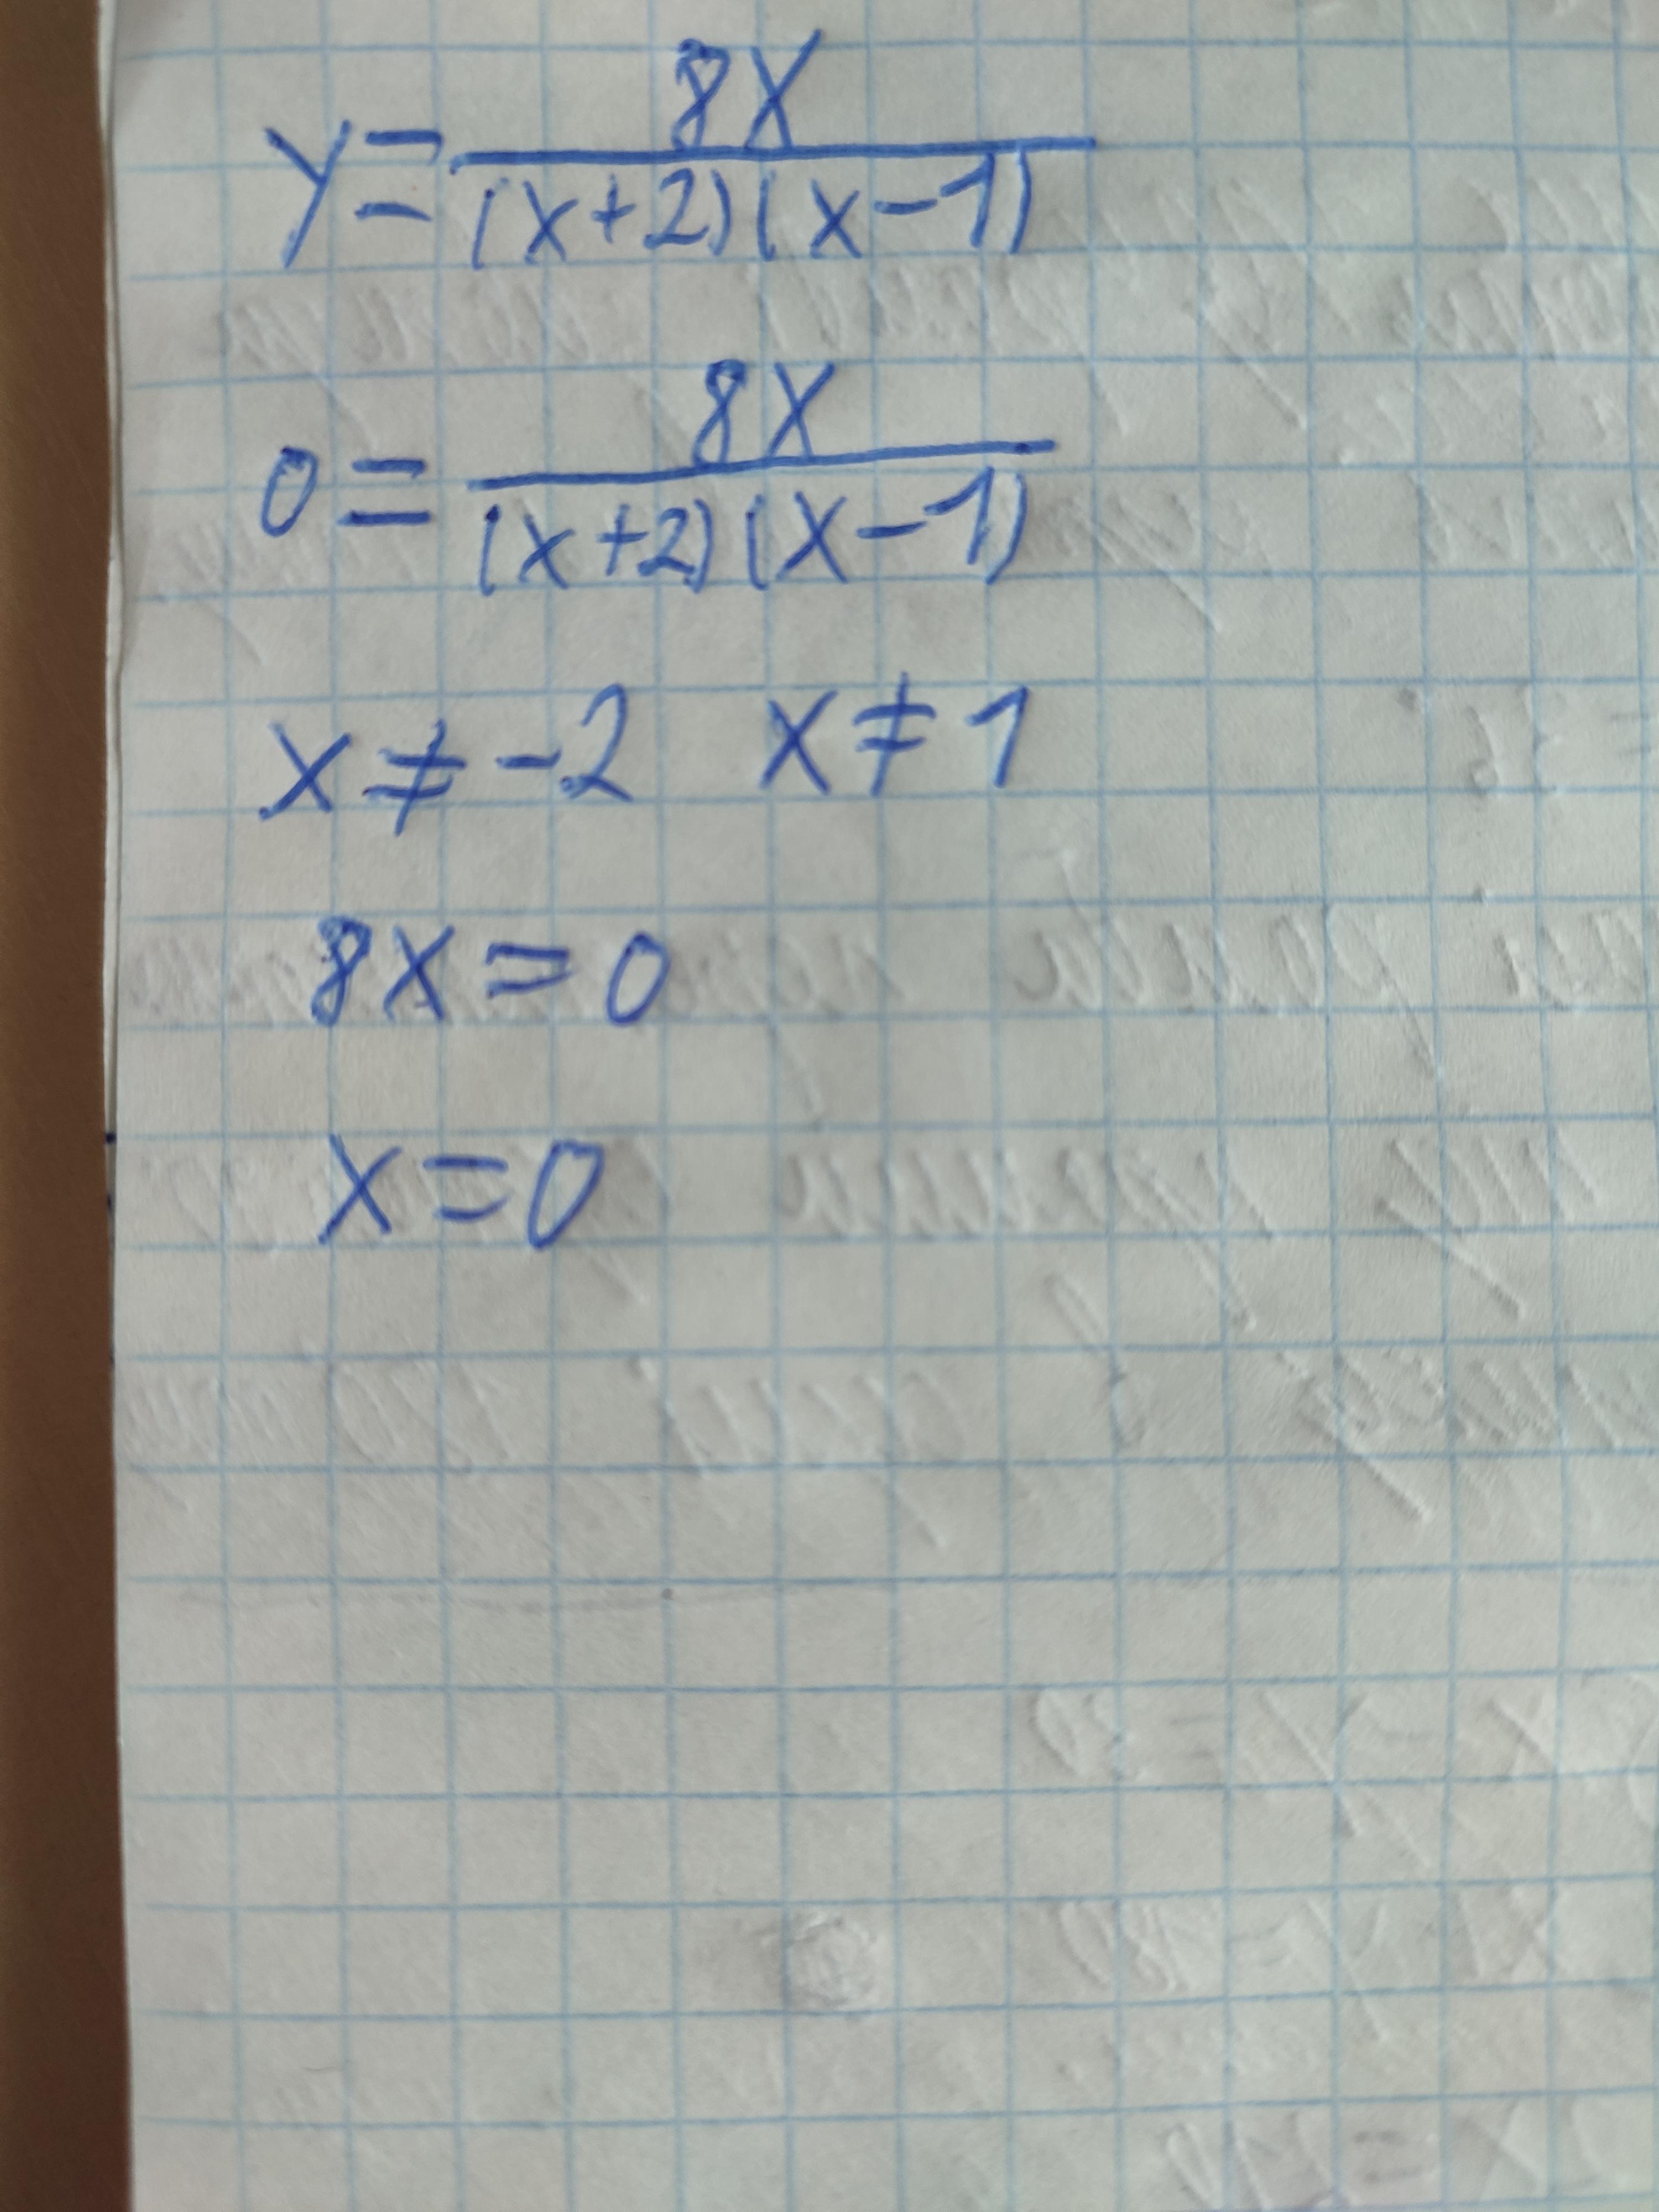 y = 8x / (x+2)(x-1)
0 = 8x / (x+2)(x-1)
x ≠ -2 x ≠ 1
8x = 0
x = 0